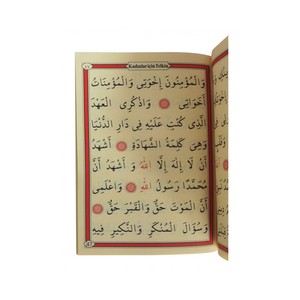 Kadınlar için Telkin
وَالْمُؤْمِنُونَ إِخْوَتِي وَالْمُؤْمِنَاتُ
أَخَوَاتِي وَاذْكُرِي الْعَهْدَ
الَّذِي كُنْتِ عَلَيْهِ فِي دَارِ الدُّنْيَا
وَهِيَ كَلِمَةُ الشَّهَادَةِ أَشْهَدُ
أَنْ لَا إِلٰهَ إِلَّا اللهُ وَ أَشْهَدُ أَنَّ
مُحَمَّدًا رَسُولُ اللهِ وَاعْلَمِي
أَنَّ الْمَوْتَ حَقٌّ وَالْقَبْرَ حَقٌّ
وَسُؤَالَ الْمُنْكَرِ وَالنَّكِيرِ فِيهِ